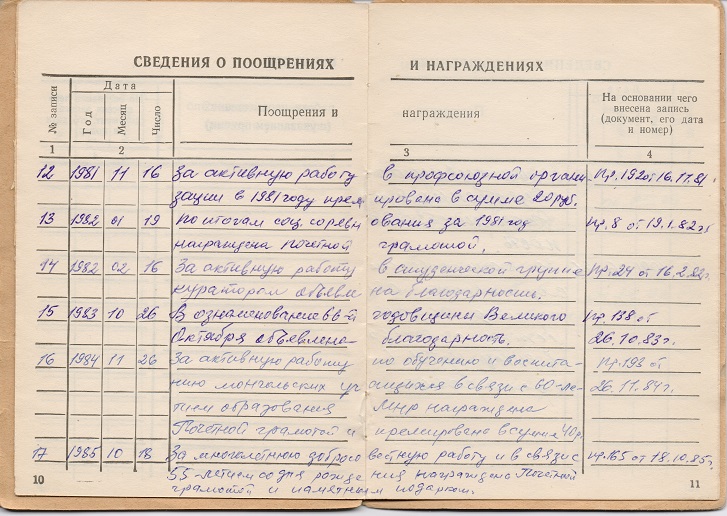 СВЕДЕНИЯ О ПООЩРЕНИЯХ И НАГРАЖДЕНИЯХ
№ записи Дата Поощрения и награждения На основании чего внесена запись (документ, его дата и номер)
Год Месяц Число
1 2 3 4
12 1981 11 16 За активную работу в профсоюзной органи Пр. 192 от 16.11.81.
зации в 1981 году прем ирована в сумме 20 руб.
13 1982 01 19 По итогам соц. соревн ования за 1981 год Пр. 8 от 19.1.82 г.
награждена Почетной грамотой.
14 1982 02 16 За активную работу в студенческой группе Пр. 24 от 16.2.82г.
куратором объявле на благодарность.
15 1983 10 26 В ознаменование 66-й годовщины Великого Пр 138 от
Октября объявлена благодарность. 26.10.83 г.
16 1984 11 26 За активную работу по обучению и воспита Пр. 193 от
нию монгольских уч ащихся в связи с 60-ле 26.11.84 г.
тием образования МНР награждена
Почетной грамотой и премирована в сумме 40 р.
17 1985 10 18 За многолетнюю добросо вестную работу и в связи с пр. 165 от 18.10.85 г.
55-летием со дня рожде ния награждена Почетной
грамотой и памятным подарком.
10 11